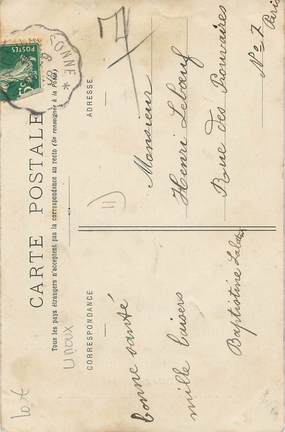 CARTE POSTALE
Tous les pays étrangers n'acceptent pas la correspondance au recto (Se renseigner à la Poste)
CORRESPONDANCE
ADRESSE
unaux
bonne santé
mille baisers
Baptistine
11
Monsieur
Henri Lebœuf
Rue des Prouvaires
No 7 Paris
POSTES
5
lot